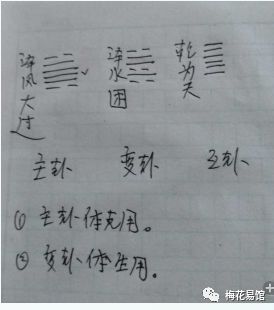 泽风大过
泽水困
乾为天
主卦 变卦 互卦
① 主卦体克用。
② 变卦体生用。
梅花易馆